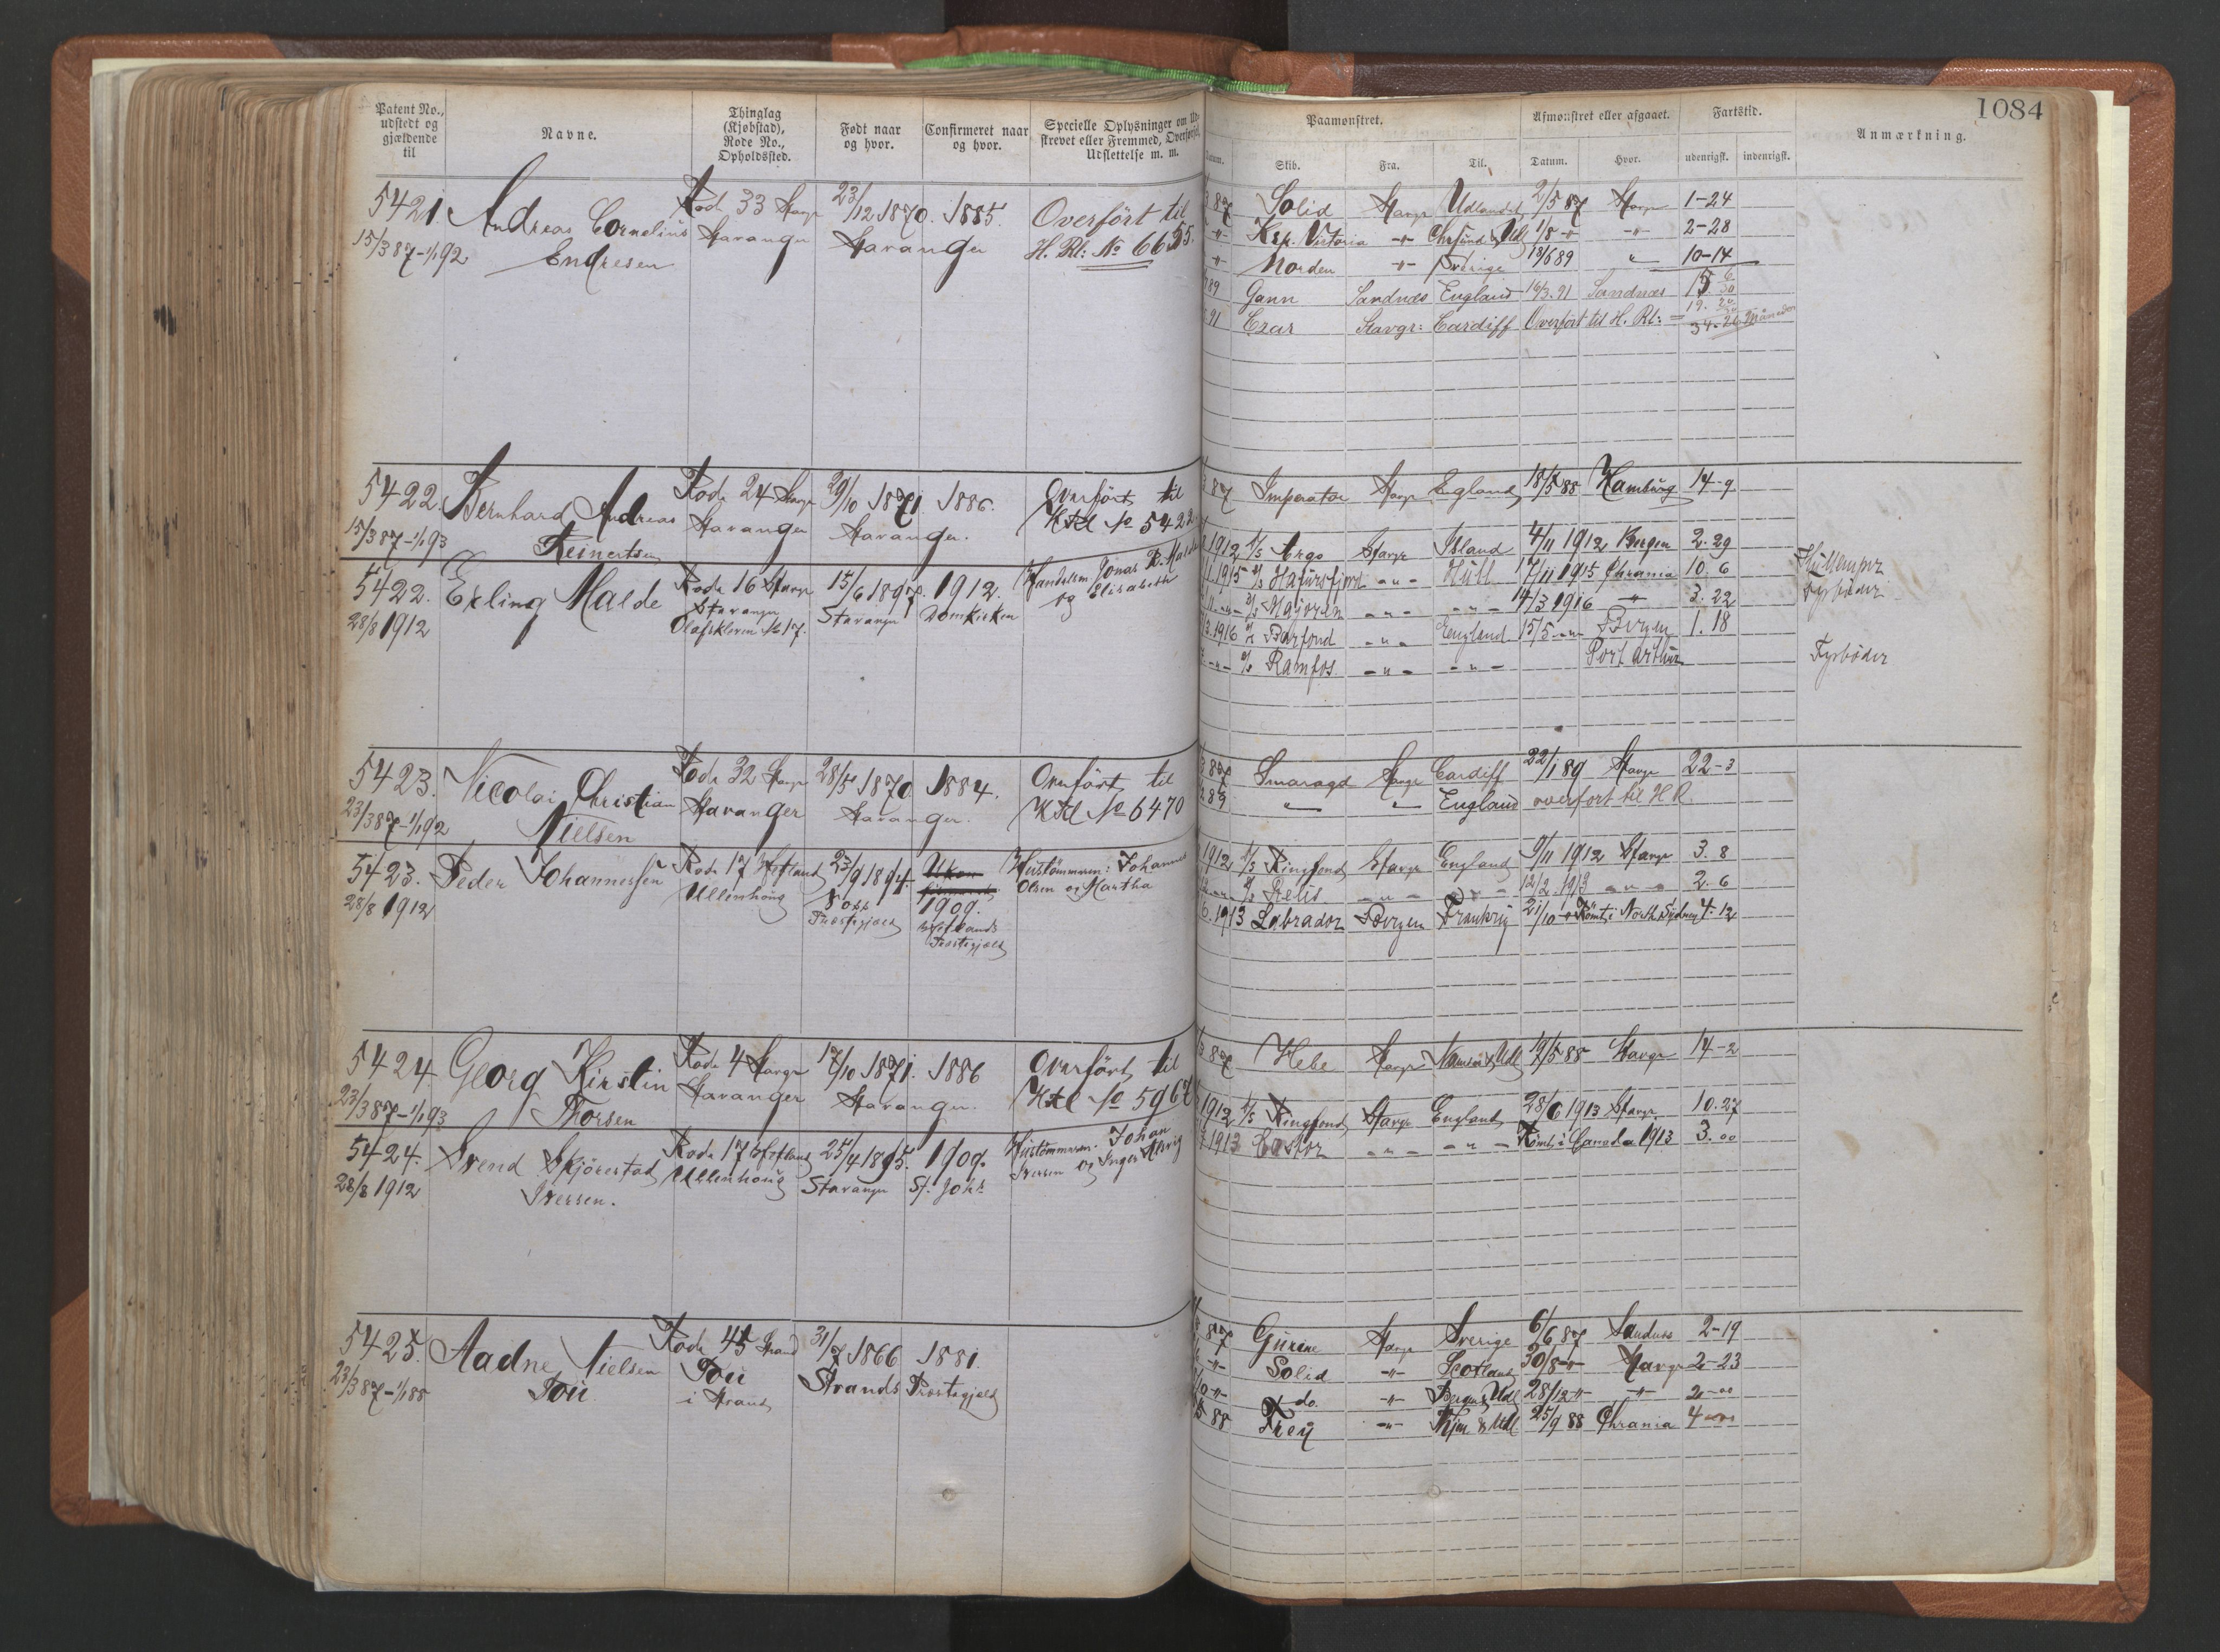 Patent No., udstedt og gjældende til
Navne.
Thinglag (Kjøbstad), Rode No., Opholdssted.
Født naar og hvor.
Confirmeret naar og hvor.
Specielle Oplysninger om Ud-
skrevet eller Fremmed, Overførsel,
Udslettelse m. m.
Paamønstret.
Afmønstret eller afgaaet.
Fartstid.
Anmærkning.
1084
Datum. Skib. Fra. Til. Datum. Hvor. udenrigsk. indenrigsk.
5421 Andreas Cornelius Rode 33 Stavgr 23/12 1870. 1885. Overført til
15/3 87-1/1 92 Endresen Stavanger Stavanger H. Rl: No 6655.
87 Solid Stavgr Udlandet 2/5 87 Stavgr 1-24
-"- Kep. Victoria -"- Chrsund & Udl 1/8 -"- -"- 2-28
-"- Norden -"- Sverige 18/6 89 " 10-14
89 Gann Sandnæs England 16/3. 91 Sandnæs 15
91 Czar Stavgr: Cardiff Overført til H. Rl: = 34-26 Måneder
5422. Bernhard Andreas Rode 24 Stavgr 29/10 1871. 1886. Overført til
15/3 87-1/1 93 Reinertsen Stavanger Stavanger. HRl No 5422
87 Imperator Stavgr England 18/5 88 Hamburg 14-9
5422. Erling Malde Rode 16 Stavgr 15/6 1897. 1912. Handelsm. Jonas B. Malde
28/8 1912 Stavanger Stavanger Domkirken og Elisabeth
Olafskleven No 17.
1912 D/S Argo Stavgr Island 4/11 1912 Bergen 2.29
1915 D/S Hafursfjord -"- Hull 17/11 1915 Chrania 10.6 Kullemper
-"- -"- 14/3 1916 -"- 3.22 Fyrbøder
1916 -"- England 15/5 -"- Bergen 1.18
Ramfos -"- -"- Port Arthur Fyrbøder
5423. Nicolai Christian Rode 32 Stavgr 28/5 1870 1884. Overført til
23/3 87-1/1 92 Nielsen Stavanger Stavanger. HRl No 6470
87 Smaragd Stavgr Cardiff 22/1 89 Stavgr 22-3
89 " " England overfort til H R.
5423. Peder Johannessen Rode 17 Hetland 23/9 1894. Hustømmerm: Johannes
28/8 1912 Ullenhaug 1909. Olsen og Martha
Præstegjæld Hetlands Præstegjæld
1912 D/S Ringfond Stavgr England 9/11 1912 Stavgr 3.8
-"- -"- 12/2 1913 -"- 2.6
1913 Labrador Bergen Frankrig 21/10 -"- Rømt i North Sydney 4.12
5424 Georg Kirstin Rode 4 Stavgr 17/10 1871. 1886 Overført til
23/3 87-1/1 93 Thorsen Stavanger Stavanger. HRl No 5967
87 Hebe Stavgr Namsos & Udl 19/5 88 Stavgr 14-2
5424. Svend Skjørestad Rode 17 Hetland 25/4 1895. 1909. Hustømmerm. Johan
28/8 1912 Iversen. Ullenhaug Stavanger St. Johs Iversen og Inger Marg
1912 D/S Ringfond Stavgr England 28/6 1913 Stavgr 10.27
1913 Castor -"- -"- Rømt i Canada 1913 3.00
5425. Aadne Nielsen Rode 45 Strand 31/7 1866 1881.
23/3 87-1/1 88 Tou Tou Strands Præstegjæld
i Strand
87 Gurine Stavgr Sverige 6/6 87 Sandnæs 2-19
-"- Solid -"- Scotland 30/8 -"- Stavgr 2-23
-"- do. -"- Bergen & Udl 28/12 -"- -"- 2-00
88 Frey -"- & Udl 25/9 88 Chrania 4